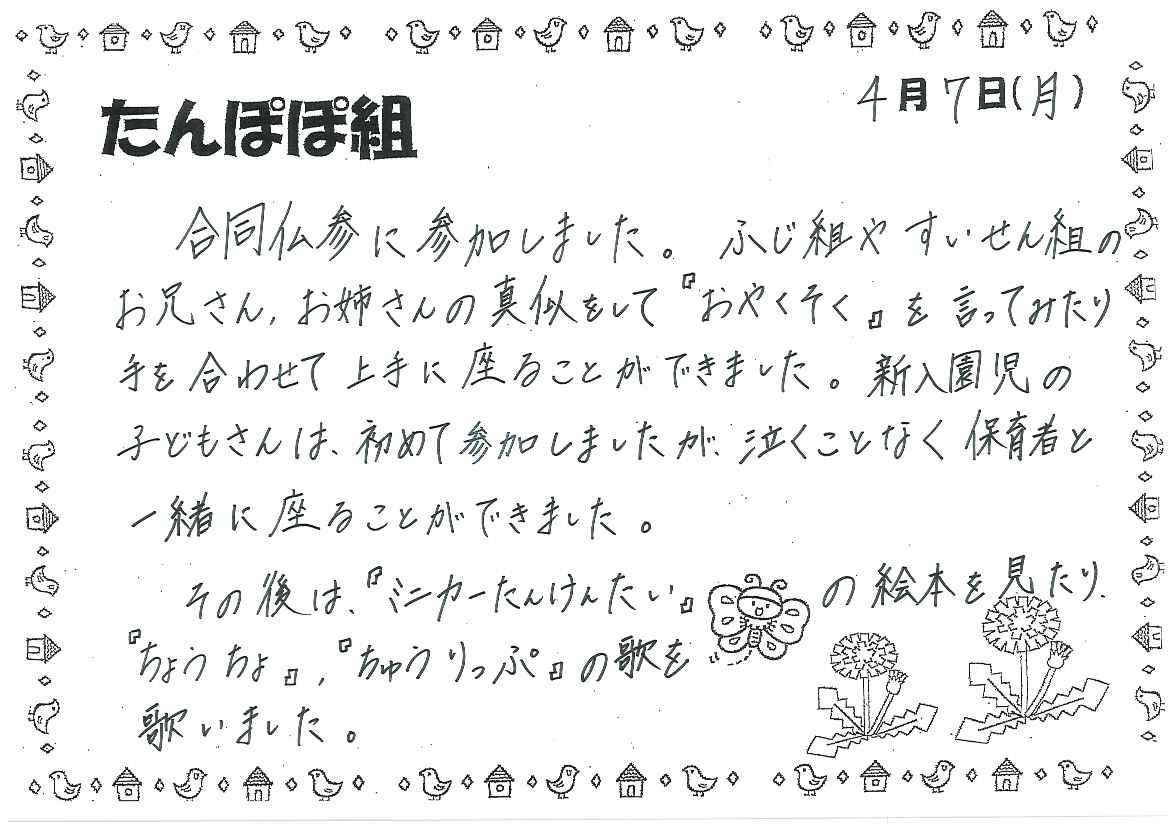 たんぽぽ組
4月7日(月)
合同仏参に参加しました。ふじ組やすいせん組の
お兄さん,お姉さんの真似をして『おやくそく』を言ってみたり
手を合わせて上手に座ることができました。新入園児の
子どもさんは、初めて参加しましたが、泣くことなく保育者と
一緒に座ることができました。
その後は、『ミニカーたんけんたい』の絵本を見たり、
『ちょうちょ』,『ちゅうりっぷ』の歌を
歌いました。